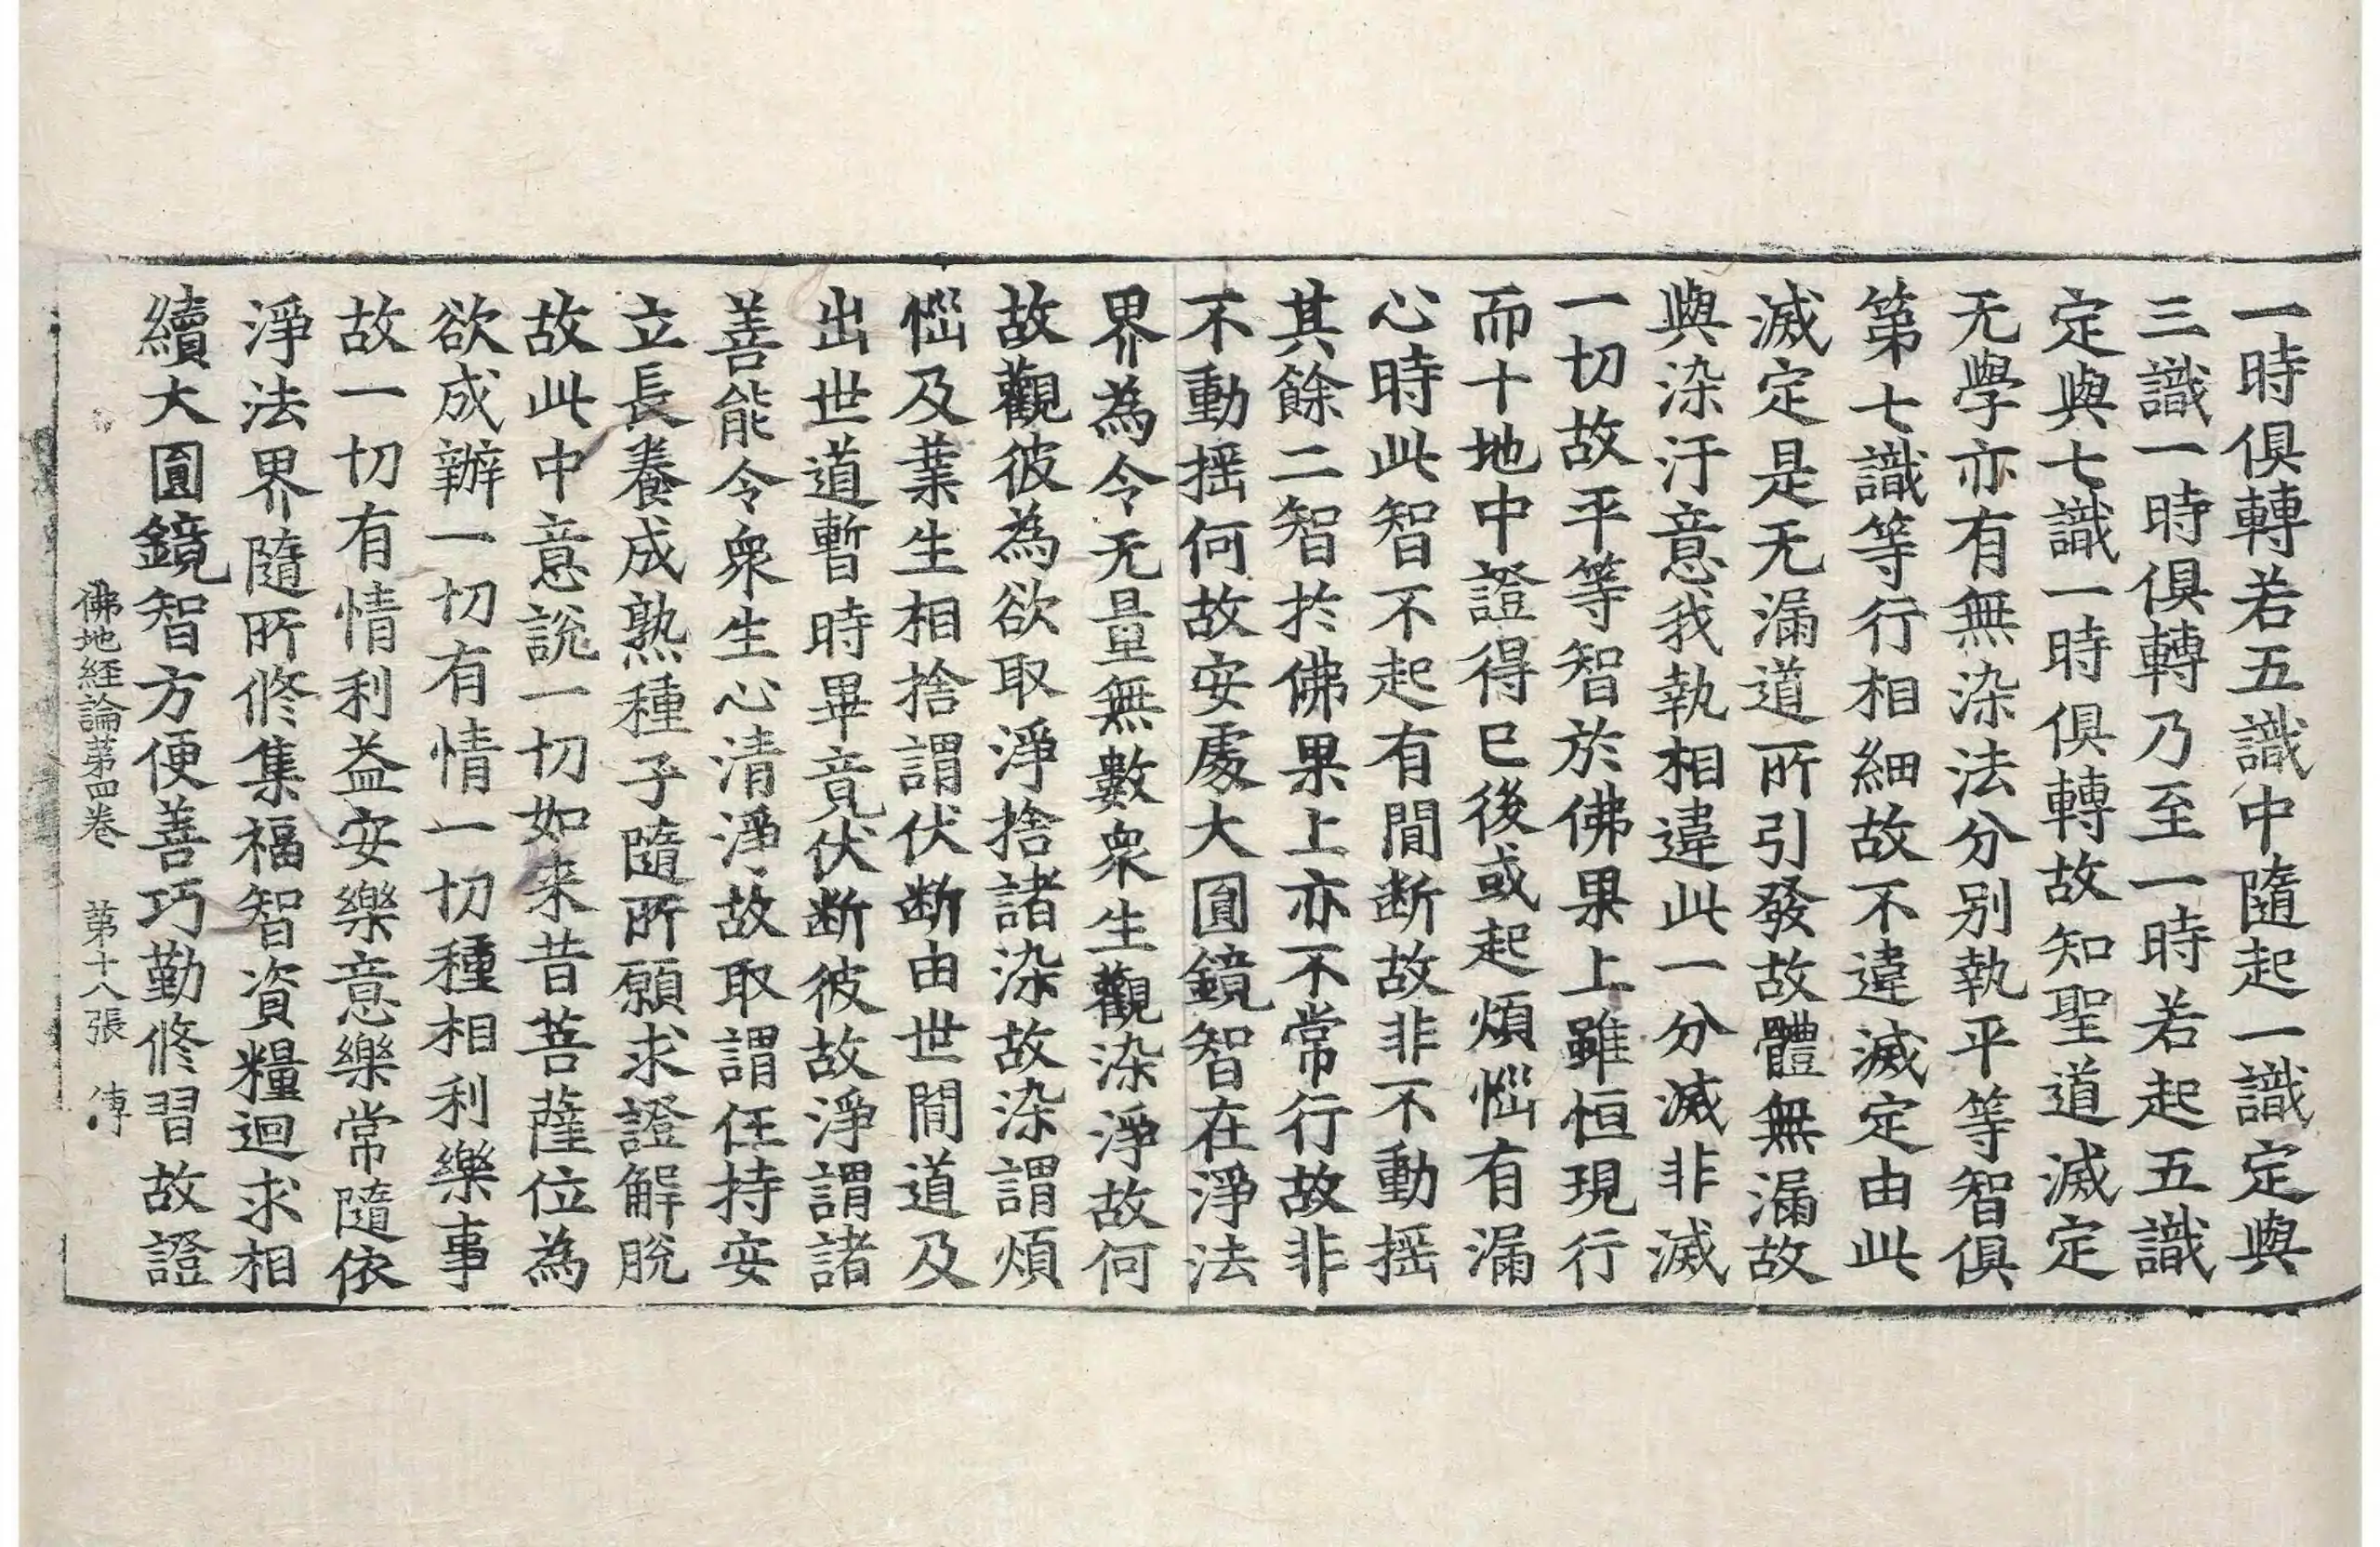 一時俱轉若五識中隨起一識定與
三識一時俱轉乃至一時若起五識
定與七識一時俱轉故知聖道滅定
无學亦有無染法分别執平等智俱
第七識等行相細故不違滅定由此
滅定是无漏道所引發故體無漏故
與染汙意我執相違此一分滅非滅
一切故平等智於佛果上雖恒現行
而十地中證得已後或起煩惱有漏
心時此智不起有間断故非不動摇
其餘二智扵佛果上亦不常行故非
不動摇何故安處大圓鏡智在淨法
界為令无量無數衆生觀染淨故何
故觀彼為欲取淨捨諸染故染謂煩
惱及業生相捨謂伏断由世間道及
出世道暫時畢竟伏断彼故淨謂諸
善能令衆生心清淨故取謂任持安
立長養成熟種子隨所願求證解脫
故此中意說一切如来昔菩薩位為
欲成辦一切有情一切種相利樂事
故一切有情利益安樂意樂常隨依
淨法界隨所修集福智資糧迴求相
續大圓鏡智方便善巧勤修習故證
佛地経論第四卷 第十八張 傳